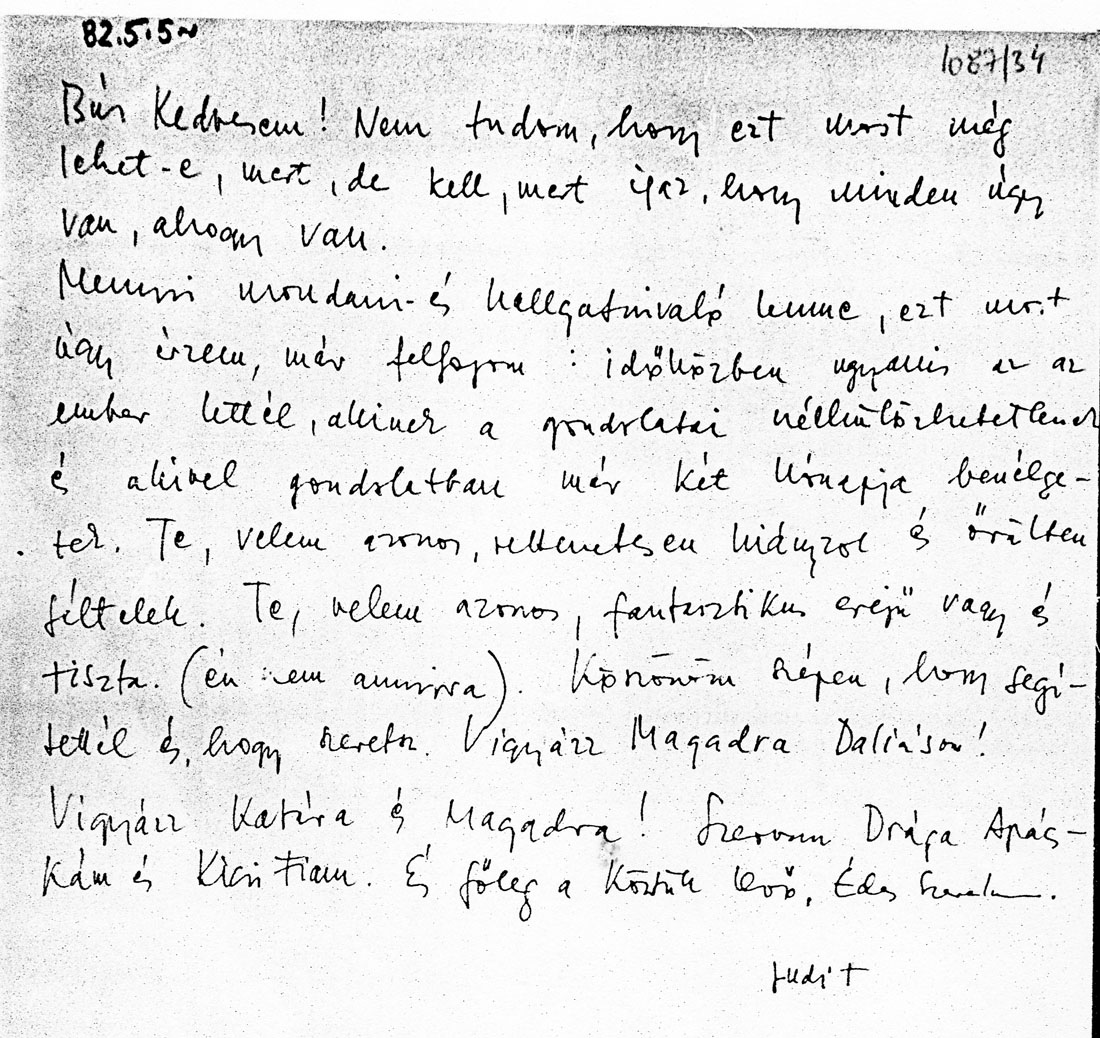 82.5.5
1087/34
Kedvesem! Nem tudom, hogy ezt most még
lehet-e, mert, de kell, mert igaz, hogy minden úgy
van, ahogy van.
Mennyi mondani- és hallgatnivaló lenne, ezt most
úgy érzem, már felfogom: időközben ugyanis az az
ember lettél, akinek a gondolatai nélkülözhetetlenek
és akivel gondolatban már két hónapja beszélge-
tek. Te, velem azonos, rettenetesen hiányzol és őrülten
féltelek. Te, velem azonos, fantasztikus erejű vagy és
tiszta. (én nem annyira). Köszönöm szépen, hogy segí-
tettél és, hogy szeretsz. Vigyázz Magadra
Vigyázz Katára és Magadra! Szervusz Drága Apács-
kám és Kicsi Fiam. És főleg a Köztük levő, Édes Szerelmem.
Judit